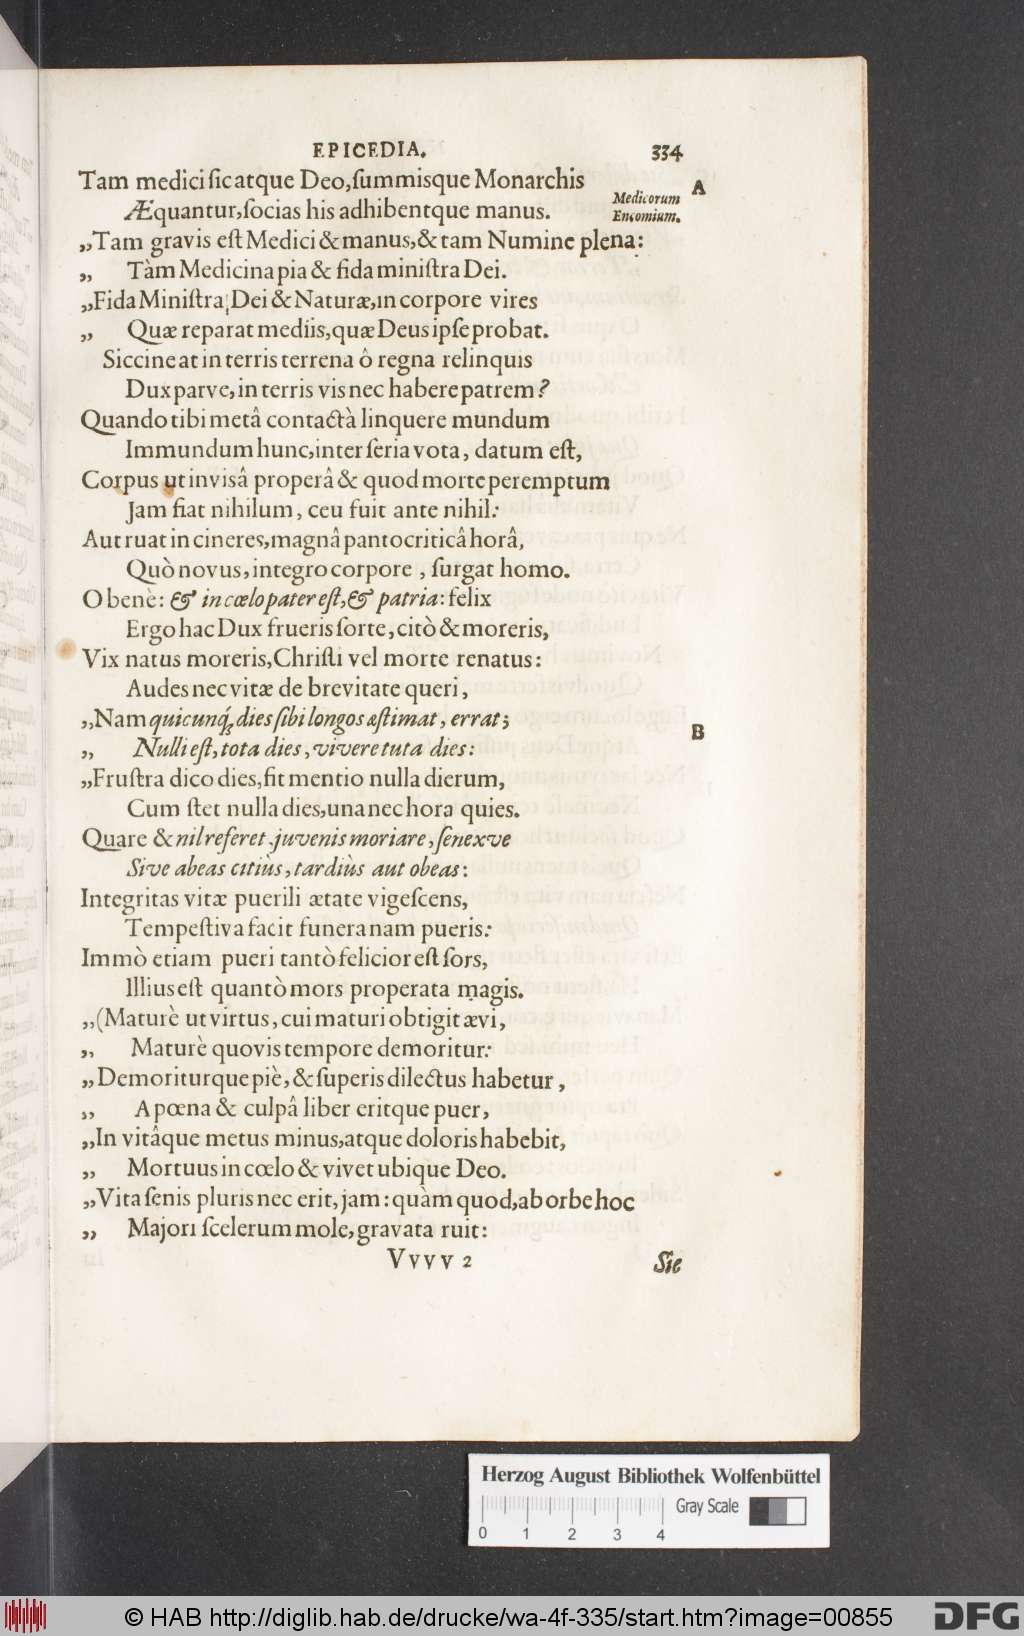 EPICEDIA. 334
Tam medici sic atque Deo, summisque Monarchis
A
Medicorum
Encomium.
Æquantur, socias his adhibentque manus.
„Tam gravis est Medici & manus, & tam Numine plena:
„ Tàm Medicina pia & fida ministra Dei.
„Fida Ministra Dei & Naturæ, in corpore vires
„ Quæ reparat mediis, quæ Deus ipse probat.
Siccine at in terris terrena ô regna relinquis
Dux parve, in terris vis nec habere patrem?
Quando tibi metâ contactà linquere mundum
Immundum hunc, inter seria vota, datum est,
Corpus ut invisâ properâ & quod morte peremptum
Jam fiat nihilum, ceu fuit ante nihil:
Aut ruat in cineres, magnâ pantocriticâ horâ,
Quò novus, integro corpore, surgat homo.
O benè: & in cœlo pater est, & patria: felix
Ergo hac Dux frueris sorte, citò & moreris,
Vix natus moreris, Christi vel morte renatus:
Audes nec vitæ de brevitate queri,
„Nam quicunq; dies sibi longos æstimat, errat;
B
„ Nulli est, tota dies, vivere tuta dies:
„Frustra dico dies, fit mentio nulla dierum,
Cum stet nulla dies, una nec hora quies.
Quare & nil refert juvenis moriare, senex ve
Sive abeas citiùs, tardiùs aut obeas:
Integritas vitæ puerili ætate vigescens,
Tempestiva facit funera nam pueris:
Immò etiam pueri tantò felicior est sors,
Illius est quantò mors properata magis.
„(Maturè ut virtus, cui maturi obtigit ævi,
„ Maturè quovis tempore demoritur:
„Demoriturque piè, & superis dilectus habetur,
„ A pœna & culpâ liber eritque puer,
„In vitâque metus minus, atque doloris habebit,
„ Mortuus in cœlo & vivet ubique Deo.
„Vita senis pluris nec erit, jam: quàm quod, ab orbe hoc
„ Majori scelerum mole, gravata ruit:
Vvvv 2 Sie
Herzog August Bibliothek Wolfenbüttel
Gray Scale
0 1 2 3 4
© HAB http://diglib.hab.de/drucke/wa-4f-335/start.htm?image=00855
DFG